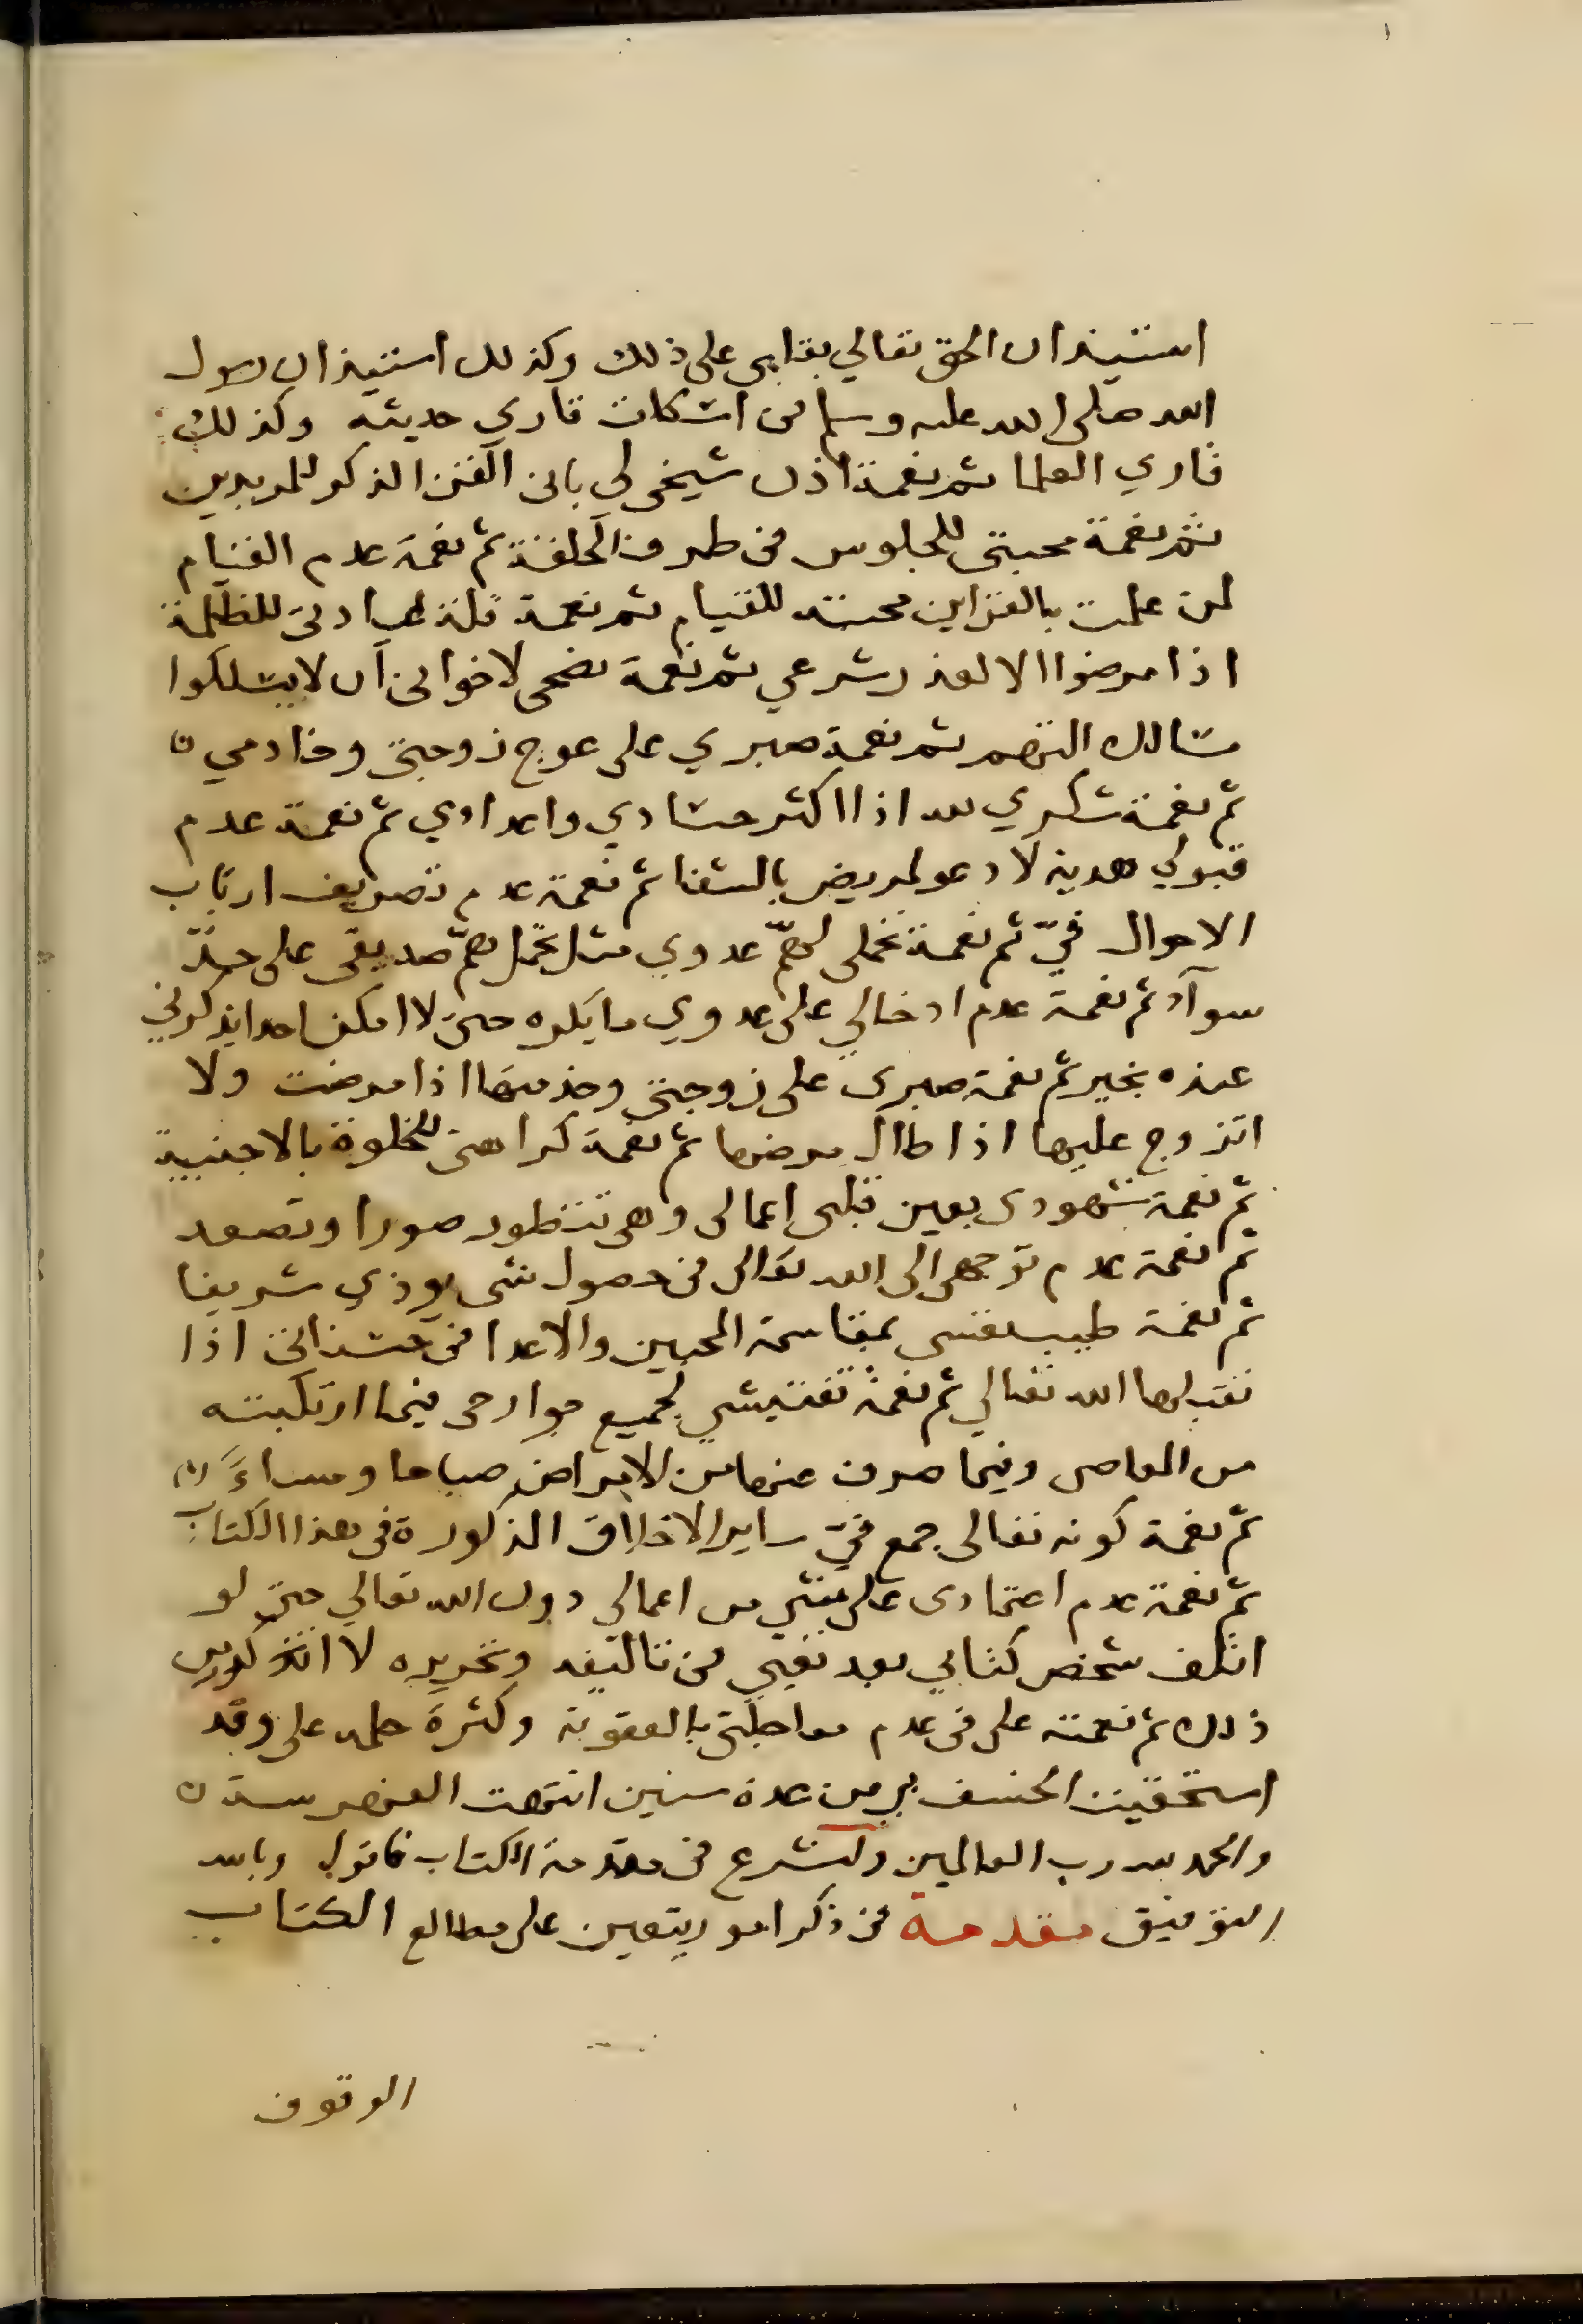 استيذان الحق تعالى بقلبي على ذلك وكذلك استيذان رسول
الله صلى الله عليه وسلم في اسكات قاري حديثه وكذلك
قاري العلما ثم نعمة اذن شيخي لي بان القن الذكر للمريدين
ثم نعمة محبتي للجلوس في طرف الحلقة ثم نعمة عدم القيام
لمن علمت بالقراين محبته للقيام ثم نعمة قلة عيادتي للظلمة
اذا مرضوا الا لعذر شرعي ثم نعمة نصحي لاخواني ان لا يسلكوا
مسالك التهم ثم نعمة صبري على عوج زوجتي وخادمي
ثم نعمة شكري لله اذا اكثر حسادي واعدادي ثم نعمة عدم
قبولي هدية لادعو لمريض بالشفا ثم نعمة عدم تصريف ارباب
الاحوال فيّ ثم نعمة تحملي لهمّ عدوي مثل تحمل همّ صديقي على حدّ
سوآء ثم نعمة عدم ادخالي على عدوي ما يكره حتى لا امكن احدا يذكرني
عنده بخير ثم نعمة صبري على زوجتي وخدمتها اذا مرضت ولا
اتزوج عليها اذا طال مرضها ثم نعمة كراهتي للخلوة بالاجنبية
ثم نعمة شهودي بعين قلبي اعمالي وهي تتطور صورا وتصعد
ثم نعمة عدم توجهي الى الله تعالى في حصول شي يوذي شريفا
ثم نعمة طيب نفسي بمقاسمة المحبين والاعدا في حسناتي اذا
تقبلها الله تعالى ثم نعمة تفتيشي لجميع جوارحي فيما ارتكبته
من المعاصي وفيما صرف عنها من الامراض صباحا ومساءً
ثم نعمة كونه تعالى جمع فيّ ساير الاخلاق المذكورة في هذا الكتاب
ثم نعمة عدم اعتمادي على شي من اعمالي دون الله تعالى حتى لو
اتلف شخص كتابي بعد تعبي في تاليفه وتحريره لا اتكدر من
ذلك ثم نعمته علي في عدم معاجلتي بالعقوبة وكثرة حلمه علي وقد
استحقيت الخسف بي من عدة سنين انتهت الفهرسة
والحمد لله رب العالمين ولنشرع في مقدمة الكتاب فاقول وبالله
التوفيق مقدمة في ذكر امور يتعين على مطالع الكتاب
الوقوف